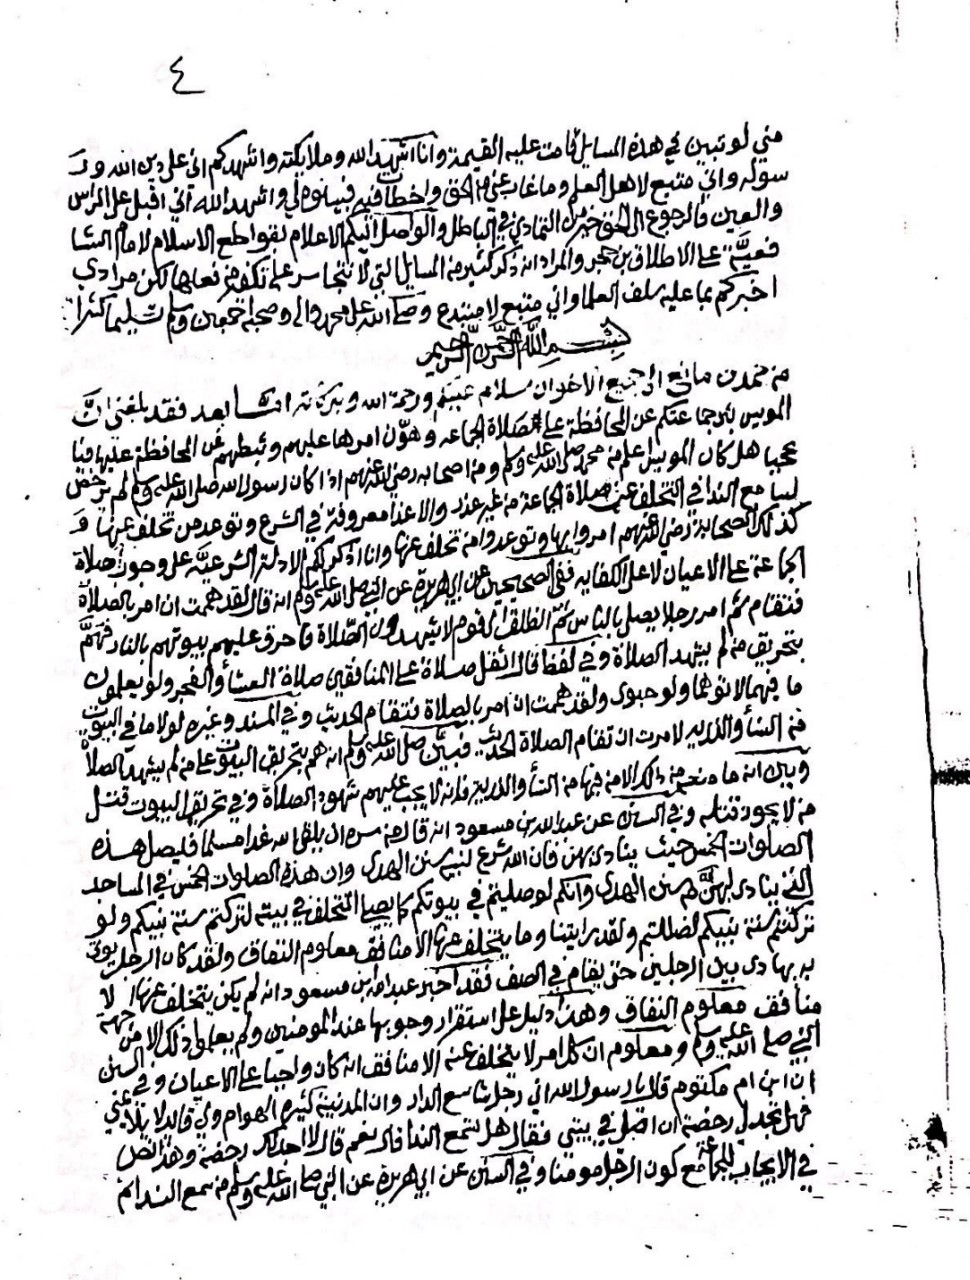 ٤
مني لو تبين في هذه المسايل قامت عليه القيمة وانا اشهد الله وملايكته واشهدكم اني على دين الله ور
سوله واني متبع لاهل العلم وما غاب عني من الحق واخطات فيه فبينوه لي واشهد الله اني اقبل على الراس
والعين فالرجوع الى الحق خير من التمادي في الباطل والواصل اليكم الاعلام بقواطع الاسلام لامام الشا
فعية على الاطلاق بن حجر والمراد انه ذكر كثير من المسايل التي لا نتجاسر على تكفير من فعلها لكن مرادي
اخبركم بما عليه سلف العلما واني متبع لا مبتدع وصلى الله على محمد واله وصحبه اجمعين وسلم تسليما كثيرا
بسم الله الرحمن الرحيم
من محمد بن مانع الى جميع الاخوان سلام عليكم ورحمة الله وبركاته امـا بعد فقد بلغني ان
المويس يثبط جماعتكم عن المحافظة على صلاة الجماعه وهون امرها عليهم وثبطهم عن المحافظة عليها فيا
عجبا هل كان المويس اعلم من محمد صلى الله عليه وسلم ومن اصحابه رضي الله عنهم اذا كان رسول الله صلى الله عليه وسلم لم يرخص
لسامع الندا في التخلف عن صلاة الجماعة من غير عذر والاعذار معروفة في الشرع وتوعد من تخلف عنها و
كذلك الصحابة رضي الله عنهم امروا بها وتوعدوا من تخلف عنها وانا اذكر لكم الادلة الشرعية على وجوب صلاة
الجماعة على الاعيان لا على الكفايه ففي الصحيحين عن ابي هريرة عن النبي صلى الله عليه وسلم انه قال لقد هممت ان امر بالصلاة
فتقام ثم امر رجلا يصلي بالناس ثم انطلق الى قوم لا يشهدون الصلاة فاحرق عليهم بيوتهم بالنار فهم
بتحريق من لم يشهد الصلاة وفي لفظ قال اثقل صلاة على المنافقين صلاة العشا والفجر ولو يعلمون
ما فيهما لاتوهما ولو حبوا ولقد هممت ان امر بالصلاة فتقام الحديث وفي المسند وغيره لولا ما في البيوت
من النسا والذرية لامرت ان تقام الصلاة الحديث فبين صلى الله عليه وسلم انه هم بتحريق البيوت على من لم يشهد الصلاة
وبين انه ما منعه من ذلك الا من فيها من النسا والذرية فانه لا يجب عليهم شهود الصلاة وفي تحريق البيوت قتل
من لا يجوز قتله وفي السنن عن عبدالله بن مسعود انه قال من سره ان يلقى الله غدا مسلما فليصل هذه
الصلوات الخمس حيث ينادى بهن فان الله شرع لنبيه سنن الهدى وان هذه الصلوات الخمس في المساجد
التي ينادى بهن من سنن الهدى وانكم لو صليتم في بيوتكم كما يصلي المتخلف في بيته لتركتم سنة نبيكم ولو
تركتم سنة نبيكم لضللتم ولقد رايتنا وما يتخلف عنها الا منافق معلوم النفاق ولقد كان الرجل يؤتى
به يهادى بين الرجلين حتى يقام في الصف فقد اخبر عبدالله بن مسعود انه لم يكن يتخلف عنها الا
منافق معلوم النفاق وهذا دليل على استقرار وجوبها عند المومنين ولم يعلموا ذلك الا من جهة
النبي صلى الله عليه وسلم ومعلوم ان كل امر لا يتخلف عنه الا منافق انه كان واجبا على الاعيان وفي السنن
ان ابن ام مكتوم قال يا رسول الله اني رجل شاسع الدار وان المدينة كثيرة الهوام ولي قائد لا يلايمني
فهل تجد لي رخصة ان اصلي في بيتي فقال هل تسمع الندا قال نعم قال لا اجد لك رخصة وهذا نص
في الايجاب للجماعة مع كون الرجل مومنا وفي السنن عن ابي هريرة عن النبي صلى الله عليه وسلم من سمع الندا ثم